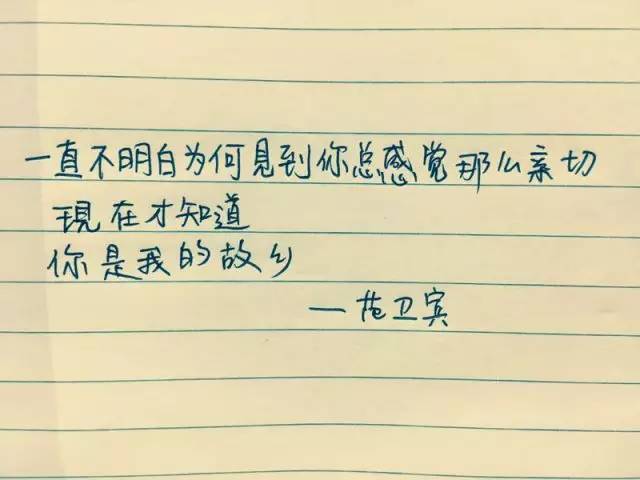 一直不明白为何见到你总感觉那么亲切
現在才知道
你是我的故乡
—范卫宾